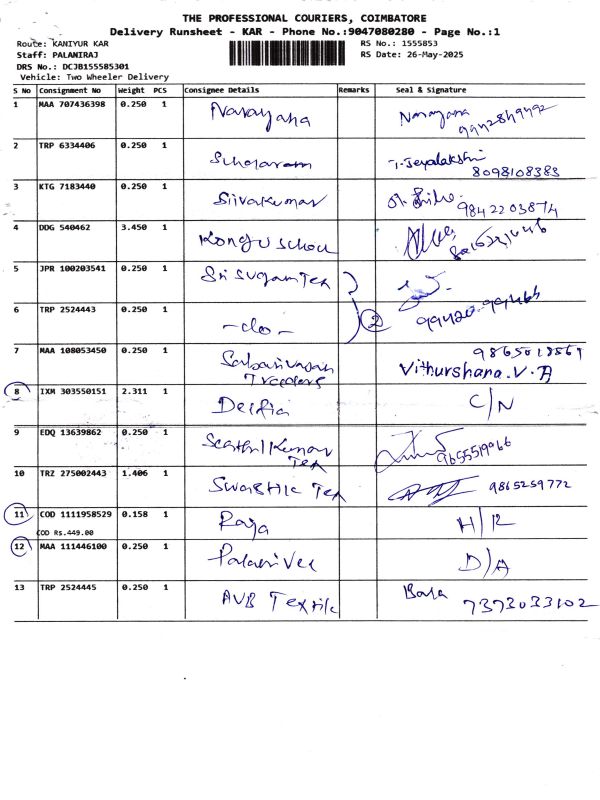 THE PROFESSIONAL COURIERS, COIMBATORE
Delivery Runsheet - KAR - Phone No.:9047080280 - Page No.:1
Route: KANIYUR KAR RS No.: 1555853
Staff: PALANIRAJ RS Date: 26-May-2025
DRS No.: DCJB155585301
Vehicle: Two Wheeler Delivery
S No Consignment No Weight PCS Consignee Details Remarks Seal & Signature
1 MAA 707436398 0.250 1 Narayana Narayana
2 TRP 6334406 0.250 1 T. Jeyalakshi
8098108383
3 KTG 7183440 0.250 1 Sivakumar
9842203874
4 DDG 540462 3.450 1
5 JPR 100203541 0.250 1 Sri Sugam Tex
6 TRP 2524443 0.250 1 -do- 2
7 MAA 108053450 0.250 1 9865018869
Traders Vithurshana.V.A
8 IXM 303550151 2.311 1 C/N
9 EDQ 13639862 0.250 1 Senthil Kumar
Tex
10 TRZ 275002443 1.406 1 Swastic Tex 9865259772
11 COD 1111958529 0.158 1 Raja H/R
COD Rs.449.00
12 MAA 111446100 0.250 1 Palanivel D/A
13 TRP 2524445 0.250 1 AVB Textile Bala
7373033102